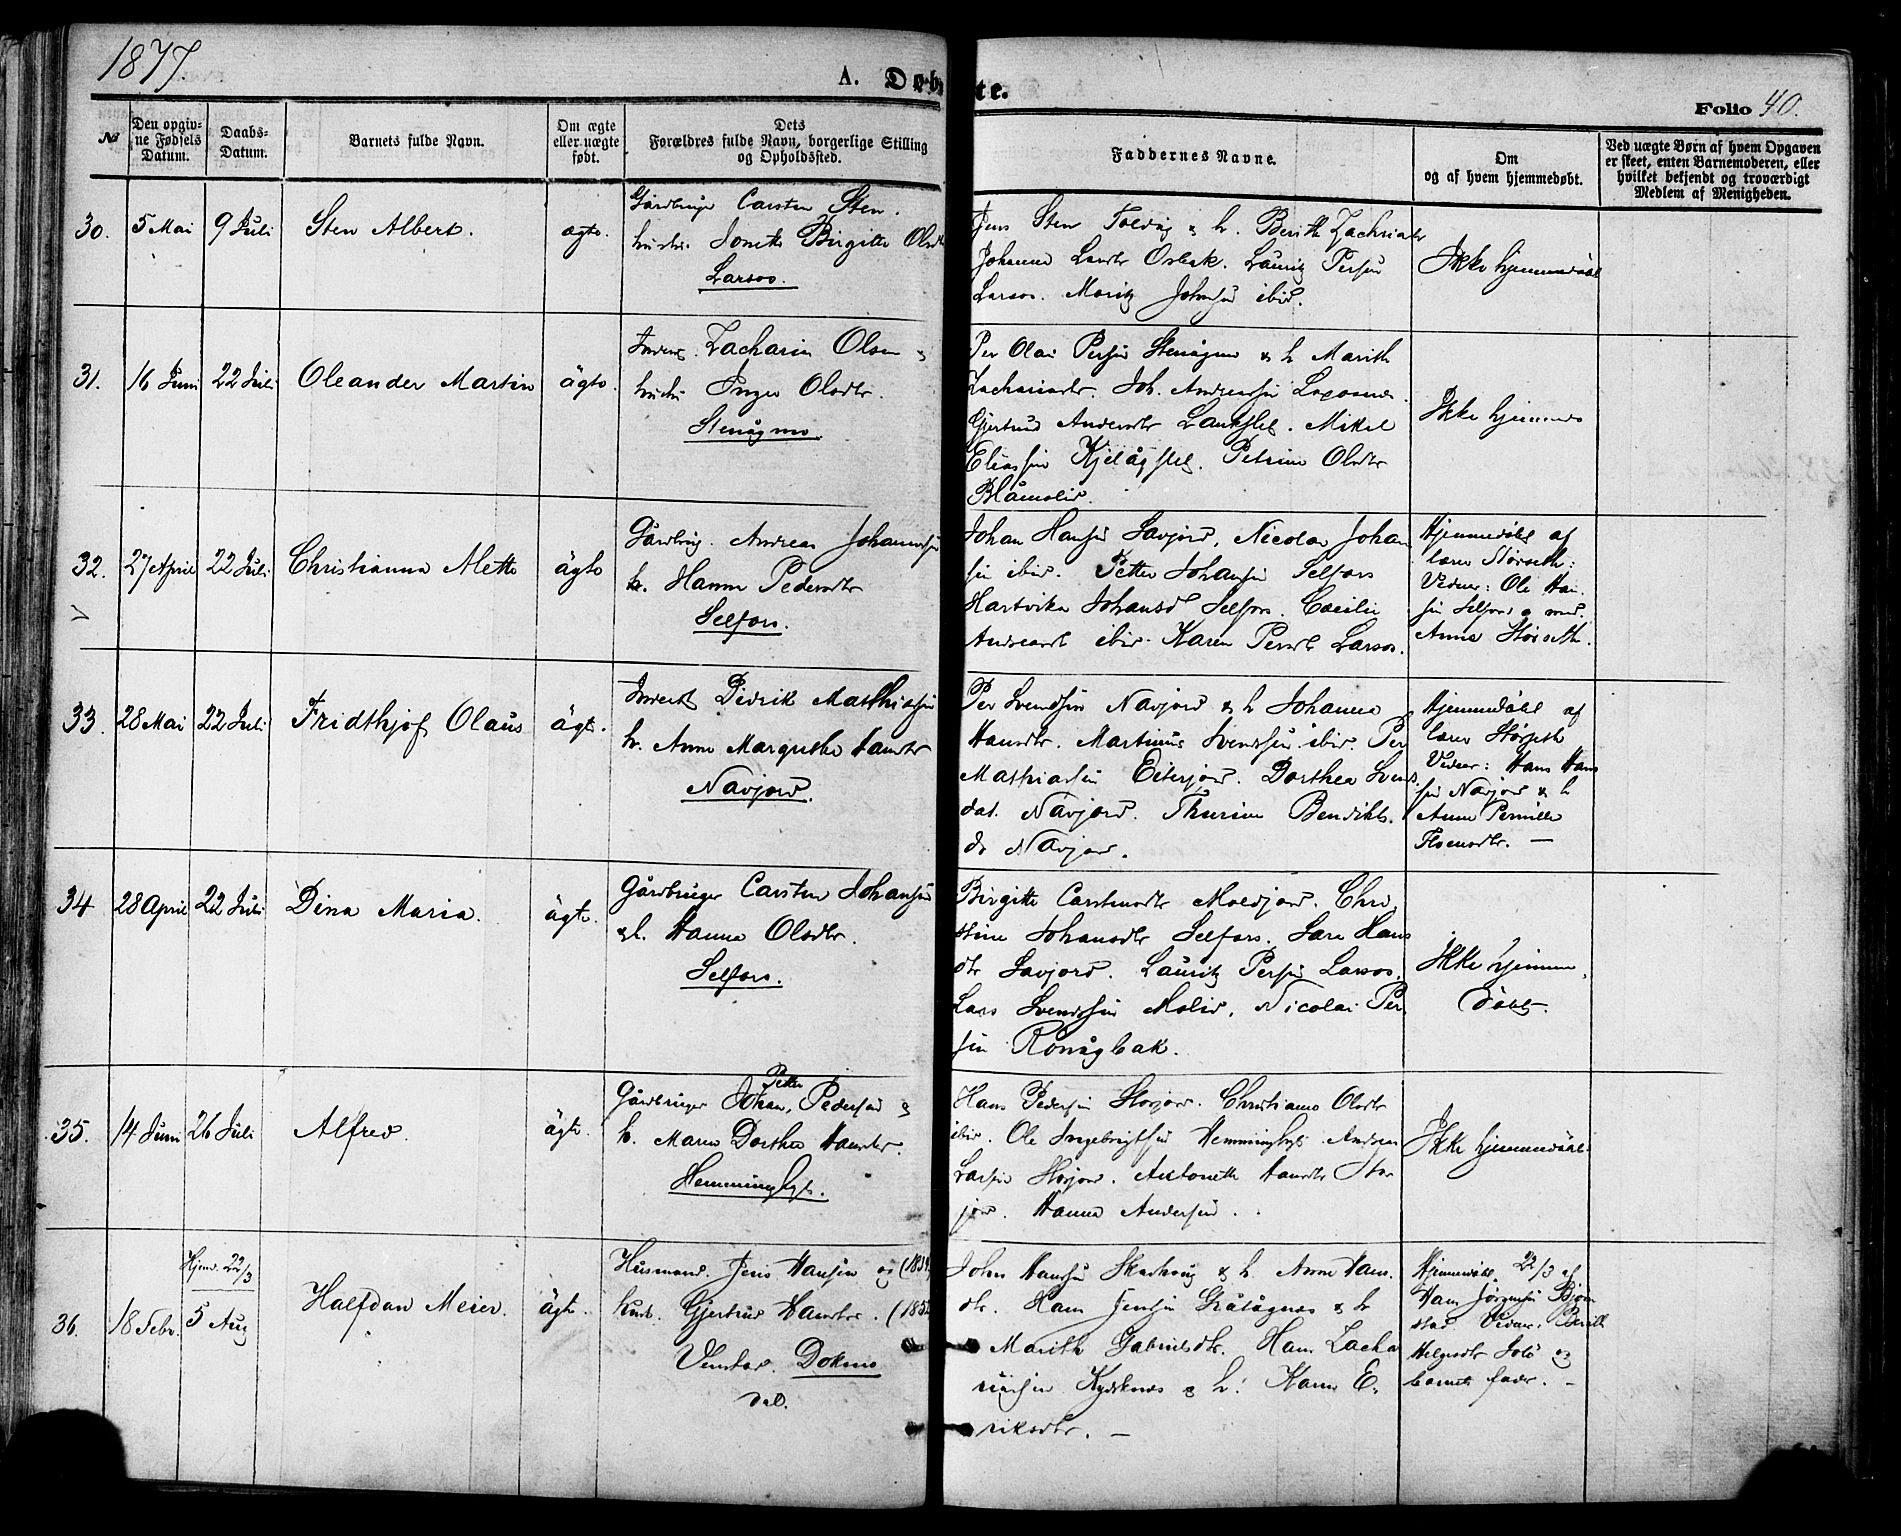 1877.
A. Døbte.
Folio 40.
№
Den opgiv-
ne Fødsels
Datum.
Daabs-
Datum.
Barnets fulde Navn.
Om ægte
eller uægte
født.
Dets
Forældres fulde Navn, borgerlige Stilling
og Opholdssted.
Faddernes Navne.
Om
og af hvem hjemmedøbt.
Ved uægte Børn af hvem Opgaven
er skeet, enten Barnemoderen, eller
hvilket bekjendt og troværdigt
Medlem af Menigheden.
30.
5 Mai
9 Juli
Sten Albert.
ægte.
Gårdbruger Carsten Sten.
Jonette Birgitte Olsdtr
Larsos.
Jens Sten & h. Berith Zachriadtr
Johanna Larsdtr Lauritz Persen
Larsos. Moritz Johnsen ibid.
Ikke hjemmedøbt
31.
16 Juni
22 Juli
Oleander Martin
ägte.
Inderst. Zacharias Olsen &
hustru Inger Olsdtr.
Stenågmo.
Per Olai Persen Stenågmo & h Marith
Zachariadtr. Joh. Andreassen
Gjertrud Andersdtr Mikel
Eliassen Kjelågslet. Petrine Olsdtr
Blåmolid.
Ikke hjemmed
32.
27 April
22 Juli
Christianna Alette
ägte
Gårdbrug. Andreas Johannessen
h. Hanna Pedersdtr
Selfors.
Johan Hansen Savjord, Nicolai Johan
sen ibid. Petter Johansen Selfors
Hartvika Johansd Selfors. Cæcilie
Andreasdt ibid. Karen Persdt Larsos.
Hjemmedøbt af
lærer Storseth:
Vidner: Ole Han-
sen Selfors og
Anna Storseth.
33.
28 Mai
22 Juli
Fridthjof Olaus
ägte.
Inderst Didrik Matthiassen
h. Anne Margrethe Hansdtr
Navjord.
Per Svendsen Navjord & h Johanna
Hansdtr. Martinus Svendsen ibid. Per
Mathiassen Eiterjord. Dorthea Svens
dat. Navjord. Thurine Bendikts.
d. Navjord.
Hjemmedøbt af
lærer Storseth
Vidner: Hans Hans
sen Navjord & h
Anne Pernille
34
28 April
22 Juli
Dina Maria.
ägte.
Gårdbruger Carsten Johansen
& h. Hanna Olsdtr.
Selfors.
Birgitte Carstensdtr Moldjord. Chri
stine Johansdtr Selfors. Sara Hans
dtr Savjord. Lauritz Persen Larsos.
Lars Svendsen Molid, Nicolai Per
sen Rønågbak.
Ikke hjemme
døbt.
35.
14 Juni
26 Juli
Alfred.
ägte.
Gårdbruger Johan Petter Pedersen &
h. Maren Dorthea Hansdtr.
Hemmingbgt.
Hans Pedersen Storjord. Christianna Olsdtr
ibid. Ole Ingebrigtsen Hemmingbgt. Andreas
Larsen Storjord. Antonette Hansdtr Stor
jord. Hanna Andersen.
Ikke hjemmedøbt
36.
18 Febr.
Hjmd. 22/3
5 Aug
Halfdan Meier.
ägte.
Husmand. Jens Hansen og
hust. Gjertrud Hansdtr.
Venstad. Dokmo
dal.
Johan Hansen & h. Anne Hans
dtr. Hans Jensen Gråtågnes & h
Marith Gabrielsdtr. Hans Zacha
riassen Kydsknes & h. Karen E.
riksdtr. —
Hjemmedøbt 22/3 af
Hans Jørgensen Bjørn
stad. Vidner: Berith
Helgesdtr og
barnets fader. —